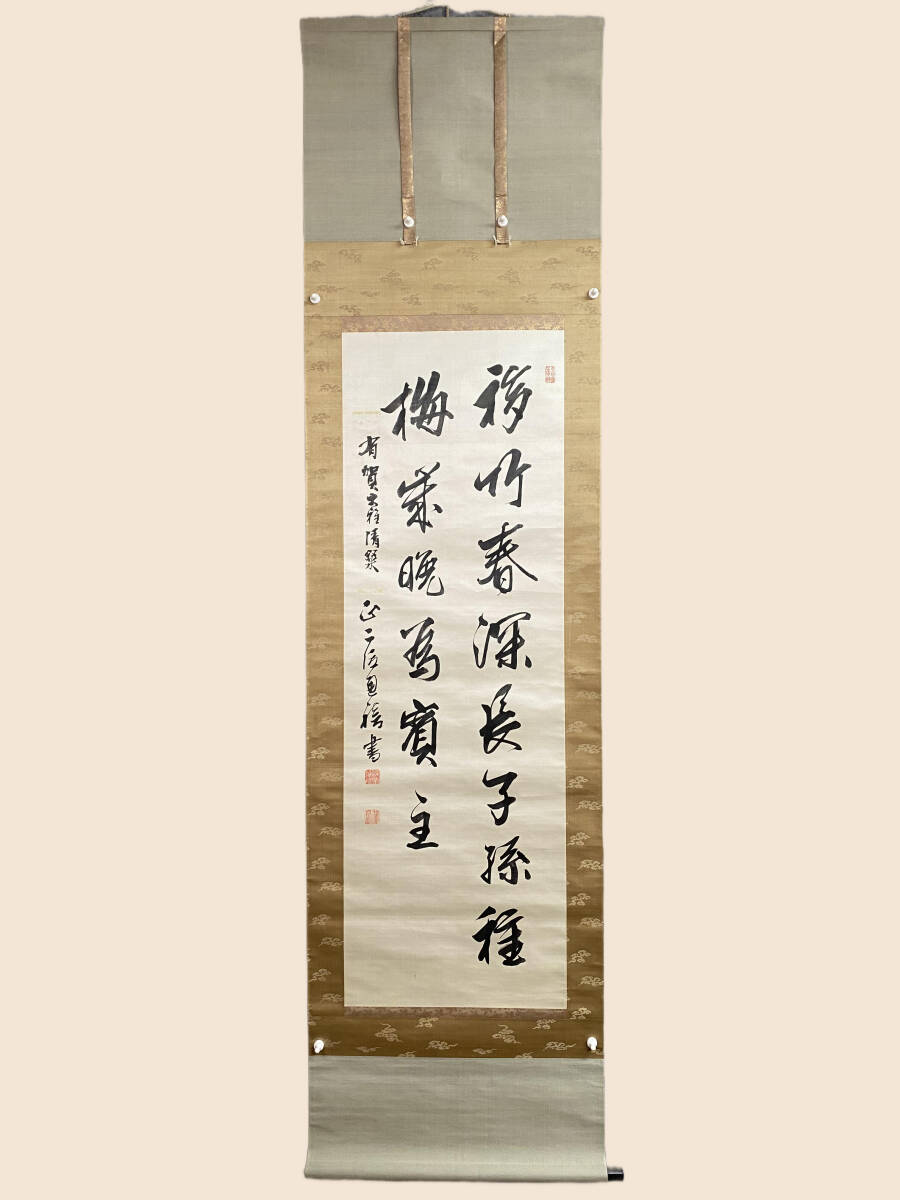 移竹春深長子孫種
梅歳晩為賓主
有賀大雅清鑒
正二位通禧書